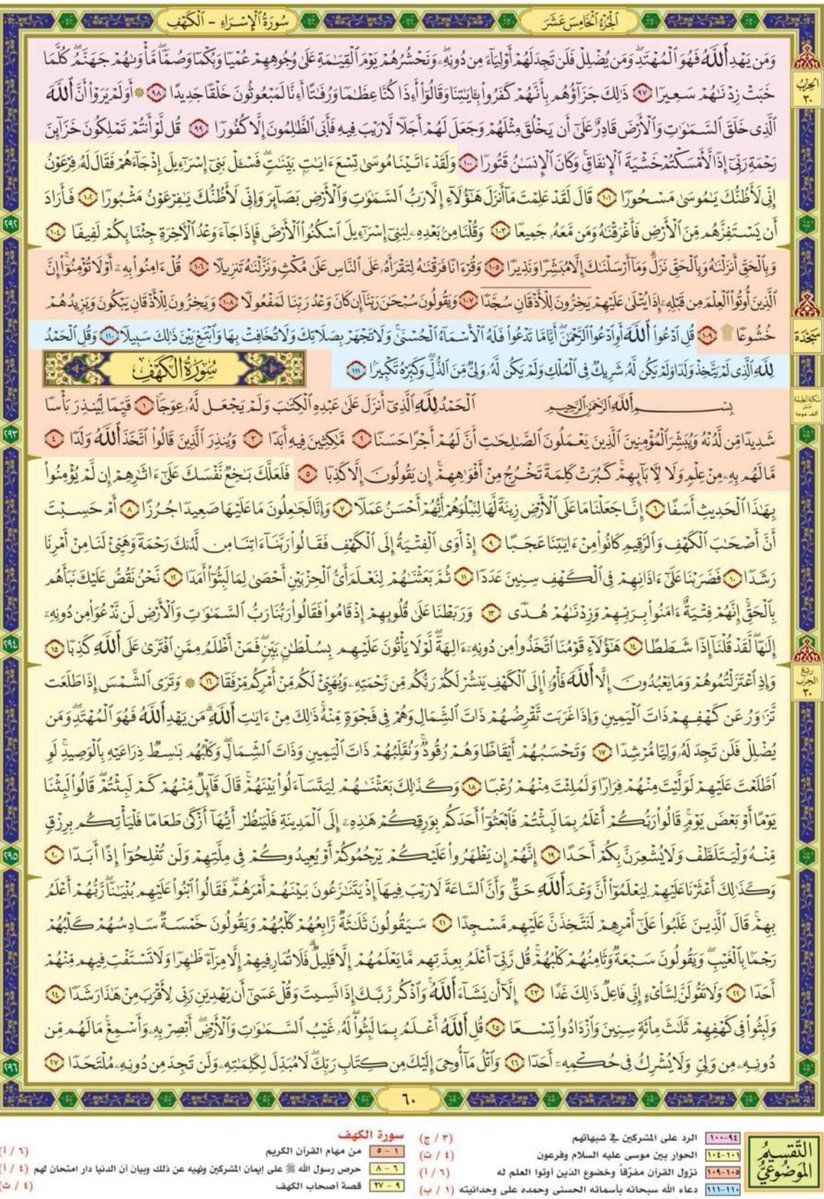 الجزء الخامس عشر
سورة الإسراء - الكهف
وَمَن يَهْدِ اللَّهُ فَهُوَ الْمُهْتَدِ وَمَن يُضْلِلْ فَلَن تَجِدَ لَهُمْ أَوْلِيَاءَ مِن دُونِهِ وَنَحْشُرُهُمْ يَوْمَ الْقِيَامَةِ عَلَىٰ وُجُوهِهِمْ عُمْيًا وَبُكْمًا وَصُمًّا مَّأْوَاهُمْ جَهَنَّمُ كُلَّمَا
خَبَتْ زِدْنَاهُمْ سَعِيرًا ٩٧ ذَٰلِكَ جَزَاؤُهُم بِأَنَّهُمْ كَفَرُوا بِآيَاتِنَا وَقَالُوا أَإِذَا كُنَّا عِظَامًا وَرُفَاتًا أَإِنَّا لَمَبْعُوثُونَ خَلْقًا جَدِيدًا ٩٨ ۞ أَوَلَمْ يَرَوْا أَنَّ اللَّهَ
الَّذِي خَلَقَ السَّمَاوَاتِ وَالْأَرْضَ قَادِرٌ عَلَىٰ أَن يَخْلُقَ مِثْلَهُمْ وَجَعَلَ لَهُمْ أَجَلًا لَّا رَيْبَ فِيهِ فَأَبَى الظَّالِمُونَ إِلَّا كُفُورًا ٩٩ قُل لَّوْ أَنتُمْ تَمْلِكُونَ خَزَائِنَ
رَحْمَةِ رَبِّي إِذًا لَّأَمْسَكْتُمْ خَشْيَةَ الْإِنفَاقِ وَكَانَ الْإِنسَانُ قَتُورًا ١٠٠ وَلَقَدْ آتَيْنَا مُوسَىٰ تِسْعَ آيَاتٍ بَيِّنَاتٍ فَسْـَٔلْ بَنِي إِسْرَائِيلَ إِذْ جَاءَهُمْ فَقَالَ لَهُ فِرْعَوْنُ
إِنِّي لَأَظُنُّكَ يَا مُوسَىٰ مَسْحُورًا ١٠١ قَالَ لَقَدْ عَلِمْتَ مَا أَنزَلَ هَٰؤُلَاءِ إِلَّا رَبُّ السَّمَاوَاتِ وَالْأَرْضِ بَصَائِرَ وَإِنِّي لَأَظُنُّكَ يَا فِرْعَوْنُ مَثْبُورًا ١٠٢ فَأَرَادَ
أَن يَسْتَفِزَّهُم مِّنَ الْأَرْضِ فَأَغْرَقْنَاهُ وَمَن مَّعَهُ جَمِيعًا ١٠٣ وَقُلْنَا مِن بَعْدِهِ لِبَنِي إِسْرَائِيلَ اسْكُنُوا الْأَرْضَ فَإِذَا جَاءَ وَعْدُ الْآخِرَةِ جِئْنَا بِكُمْ لَفِيفًا ١٠٤
وَبِالْحَقِّ أَنزَلْنَاهُ وَبِالْحَقِّ نَزَلَ وَمَا أَرْسَلْنَاكَ إِلَّا مُبَشِّرًا وَنَذِيرًا ١٠٥ وَقُرْآنًا فَرَقْنَاهُ لِتَقْرَأَهُ عَلَى النَّاسِ عَلَىٰ مُكْثٍ وَنَزَّلْنَاهُ تَنزِيلًا ١٠٦ قُلْ آمِنُوا بِهِ أَوْ لَا تُؤْمِنُوا إِنَّ
الَّذِينَ أُوتُوا الْعِلْمَ مِن قَبْلِهِ إِذَا يُتْلَىٰ عَلَيْهِمْ يَخِرُّونَ لِلْأَذْقَانِ سُجَّدًا ١٠٧ وَيَقُولُونَ سُبْحَانَ رَبِّنَا إِن كَانَ وَعْدُ رَبِّنَا لَمَفْعُولًا ١٠٨ وَيَخِرُّونَ لِلْأَذْقَانِ يَبْكُونَ وَيَزِيدُهُمْ
خُشُوعًا ۩ ١٠٩ قُلِ ادْعُوا اللَّهَ أَوِ ادْعُوا الرَّحْمَٰنَ أَيًّا مَّا تَدْعُوا فَلَهُ الْأَسْمَاءُ الْحُسْنَىٰ وَلَا تَجْهَرْ بِصَلَاتِكَ وَلَا تُخَافِتْ بِهَا وَابْتَغِ بَيْنَ ذَٰلِكَ سَبِيلًا ١١٠ وَقُلِ الْحَمْدُ
لِلَّهِ الَّذِي لَمْ يَتَّخِذْ وَلَدًا وَلَمْ يَكُن لَّهُ شَرِيكٌ فِي الْمُلْكِ وَلَمْ يَكُن لَّهُ وَلِيٌّ مِّنَ الذُّلِّ وَكَبِّرْهُ تَكْبِيرًا ١١١
سورة الكهف
بِسْمِ اللَّهِ الرَّحْمَٰنِ الرَّحِيمِ الْحَمْدُ لِلَّهِ الَّذِي أَنزَلَ عَلَىٰ عَبْدِهِ الْكِتَابَ وَلَمْ يَجْعَل لَّهُ عِوَجًا ١ قَيِّمًا لِّيُنذِرَ بَأْسًا
شَدِيدًا مِّن لَّدُنْهُ وَيُبَشِّرَ الْمُؤْمِنِينَ الَّذِينَ يَعْمَلُونَ الصَّالِحَاتِ أَنَّ لَهُمْ أَجْرًا حَسَنًا ٢ مَّاكِثِينَ فِيهِ أَبَدًا ٣ وَيُنذِرَ الَّذِينَ قَالُوا اتَّخَذَ اللَّهُ وَلَدًا ٤
مَّا لَهُم بِهِ مِنْ عِلْمٍ وَلَا لِآبَائِهِمْ كَبُرَتْ كَلِمَةً تَخْرُجُ مِنْ أَفْوَاهِهِمْ إِن يَقُولُونَ إِلَّا كَذِبًا ٥ فَلَعَلَّكَ بَاخِعٌ نَّفْسَكَ عَلَىٰ آثَارِهِمْ إِن لَّمْ يُؤْمِنُوا
بِهَٰذَا الْحَدِيثِ أَسَفًا ٦ إِنَّا جَعَلْنَا مَا عَلَى الْأَرْضِ زِينَةً لَّهَا لِنَبْلُوَهُمْ أَيُّهُمْ أَحْسَنُ عَمَلًا ٧ وَإِنَّا لَجَاعِلُونَ مَا عَلَيْهَا صَعِيدًا جُرُزًا ٨ أَمْ حَسِبْتَ
أَنَّ أَصْحَابَ الْكَهْفِ وَالرَّقِيمِ كَانُوا مِنْ آيَاتِنَا عَجَبًا ٩ إِذْ أَوَى الْفِتْيَةُ إِلَى الْكَهْفِ فَقَالُوا رَبَّنَا آتِنَا مِن لَّدُنكَ رَحْمَةً وَهَيِّئْ لَنَا مِنْ أَمْرِنَا
رَشَدًا ١٠ فَضَرَبْنَا عَلَىٰ آذَانِهِمْ فِي الْكَهْفِ سِنِينَ عَدَدًا ١١ ثُمَّ بَعَثْنَاهُمْ لِنَعْلَمَ أَيُّ الْحِزْبَيْنِ أَحْصَىٰ لِمَا لَبِثُوا أَمَدًا ١٢ نَّحْنُ نَقُصُّ عَلَيْكَ نَبَأَهُم
بِالْحَقِّ إِنَّهُمْ فِتْيَةٌ آمَنُوا بِرَبِّهِمْ وَزِدْنَاهُمْ هُدًى ١٣ وَرَبَطْنَا عَلَىٰ قُلُوبِهِمْ إِذْ قَامُوا فَقَالُوا رَبُّنَا رَبُّ السَّمَاوَاتِ وَالْأَرْضِ لَن نَّدْعُوَا مِن دُونِهِ
إِلَٰهًا لَّقَدْ قُلْنَا إِذًا شَطَطًا ١٤ هَٰؤُلَاءِ قَوْمُنَا اتَّخَذُوا مِن دُونِهِ آلِهَةً لَّوْلَا يَأْتُونَ عَلَيْهِم بِسُلْطَانٍ بَيِّنٍ فَمَنْ أَظْلَمُ مِمَّنِ افْتَرَىٰ عَلَى اللَّهِ كَذِبًا ١٥
وَإِذِ اعْتَزَلْتُمُوهُمْ وَمَا يَعْبُدُونَ إِلَّا اللَّهَ فَأْوُوا إِلَى الْكَهْفِ يَنشُرْ لَكُمْ رَبُّكُم مِّن رَّحْمَتِهِ وَيُهَيِّئْ لَكُم مِّنْ أَمْرِكُم مِّرْفَقًا ١٦ ۞ وَتَرَى الشَّمْسَ إِذَا طَلَعَت
تَّزَاوَرُ عَن كَهْفِهِمْ ذَاتَ الْيَمِينِ وَإِذَا غَرَبَت تَّقْرِضُهُمْ ذَاتَ الشِّمَالِ وَهُمْ فِي فَجْوَةٍ مِّنْهُ ذَٰلِكَ مِنْ آيَاتِ اللَّهِ مَن يَهْدِ اللَّهُ فَهُوَ الْمُهْتَدِ وَمَن
يُضْلِلْ فَلَن تَجِدَ لَهُ وَلِيًّا مُّرْشِدًا ١٧ وَتَحْسَبُهُمْ أَيْقَاظًا وَهُمْ رُقُودٌ وَنُقَلِّبُهُمْ ذَاتَ الْيَمِينِ وَذَاتَ الشِّمَالِ وَكَلْبُهُم بَاسِطٌ ذِرَاعَيْهِ بِالْوَصِيدِ لَوِ
اطَّلَعْتَ عَلَيْهِمْ لَوَلَّيْتَ مِنْهُمْ فِرَارًا وَلَمُلِئْتَ مِنْهُمْ رُعْبًا ١٨ وَكَذَٰلِكَ بَعَثْنَاهُمْ لِيَتَسَاءَلُوا بَيْنَهُمْ قَالَ قَائِلٌ مِّنْهُمْ كَمْ لَبِثْتُمْ قَالُوا لَبِثْنَا
يَوْمًا أَوْ بَعْضَ يَوْمٍ قَالُوا رَبُّكُمْ أَعْلَمُ بِمَا لَبِثْتُمْ فَابْعَثُوا أَحَدَكُم بِوَرِقِكُمْ هَٰذِهِ إِلَى الْمَدِينَةِ فَلْيَنظُرْ أَيُّهَا أَزْكَىٰ طَعَامًا فَلْيَأْتِكُم بِرِزْقٍ
مِّنْهُ وَلْيَتَلَطَّفْ وَلَا يُشْعِرَنَّ بِكُمْ أَحَدًا ١٩ إِنَّهُمْ إِن يَظْهَرُوا عَلَيْكُمْ يَرْجُمُوكُمْ أَوْ يُعِيدُوكُمْ فِي مِلَّتِهِمْ وَلَن تُفْلِحُوا إِذًا أَبَدًا ٢٠
وَكَذَٰلِكَ أَعْثَرْنَا عَلَيْهِمْ لِيَعْلَمُوا أَنَّ وَعْدَ اللَّهِ حَقٌّ وَأَنَّ السَّاعَةَ لَا رَيْبَ فِيهَا إِذْ يَتَنَازَعُونَ بَيْنَهُمْ أَمْرَهُمْ فَقَالُوا ابْنُوا عَلَيْهِم بُنْيَانًا رَّبُّهُمْ أَعْلَمُ
بِهِمْ قَالَ الَّذِينَ غَلَبُوا عَلَىٰ أَمْرِهِمْ لَنَتَّخِذَنَّ عَلَيْهِم مَّسْجِدًا ٢١ سَيَقُولُونَ ثَلَاثَةٌ رَّابِعُهُمْ كَلْبُهُمْ وَيَقُولُونَ خَمْسَةٌ سَادِسُهُمْ كَلْبُهُمْ
رَجْمًا بِالْغَيْبِ وَيَقُولُونَ سَبْعَةٌ وَثَامِنُهُمْ كَلْبُهُمْ قُل رَّبِّي أَعْلَمُ بِعِدَّتِهِم مَّا يَعْلَمُهُمْ إِلَّا قَلِيلٌ فَلَا تُمَارِ فِيهِمْ إِلَّا مِرَاءً ظَاهِرًا وَلَا تَسْتَفْتِ فِيهِم مِّنْهُمْ
أَحَدًا ٢٢ وَلَا تَقُولَنَّ لِشَايْءٍ إِنِّي فَاعِلٌ ذَٰلِكَ غَدًا ٢٣ إِلَّا أَن يَشَاءَ اللَّهُ وَاذْكُر رَّبَّكَ إِذَا نَسِيتَ وَقُلْ عَسَىٰ أَن يَهْدِيَنِ رَبِّي لِأَقْرَبَ مِنْ هَٰذَا رَشَدًا ٢٤
وَلَبِثُوا فِي كَهْفِهِمْ ثَلَاثَ مِائَةٍ سِنِينَ وَازْدَادُوا تِسْعًا ٢٥ قُلِ اللَّهُ أَعْلَمُ بِمَا لَبِثُوا لَهُ غَيْبُ السَّمَاوَاتِ وَالْأَرْضِ أَبْصِرْ بِهِ وَأَسْمِعْ مَا لَهُم مِّن
دُونِهِ مِن وَلِيٍّ وَلَا يُشْرِكُ فِي حُكْمِهِ أَحَدًا ٢٦ وَاتْلُ مَا أُوحِيَ إِلَيْكَ مِن كِتَابِ رَبِّكَ لَا مُبَدِّلَ لِكَلِمَاتِهِ وَلَن تَجِدَ مِن دُونِهِ مُلْتَحَدًا ٢٧
الحزب
٣٠
سجدة
ربع
الحزب
٣٠
٢٩٢
٢٩٣
٢٩٤
٢٩٥
٢٩٦
٦٠
التقسيم
الموضوعي
٩٤-١٠٠ الرد على المشركين في شبهاتهم (٣ / ج)
١٠١-١٠٤ الحوار بين موسى عليه السلام وفرعون (٤ / ث)
١٠٥-١٠٩ نزول القرآن مفرّقاً وخضوع الذين أوتوا العلم له (٦ / أ)
١١٠-١١١ دعاء الله سبحانه بأسمائه الحسنى وحمده على وحدانيته (١ / ب)
سورة الكهف
١ - ٥ من مهام القرآن الكريم (٦ / أ)
٦ - ٨ حرص رسول الله ﷺ على إيمان المشركين ونهيه عن ذلك وبيان أن الدنيا دار امتحان لهم (٤ / أ)
٩ - ٢٧ قصة أصحاب الكهف (٤ / ث)